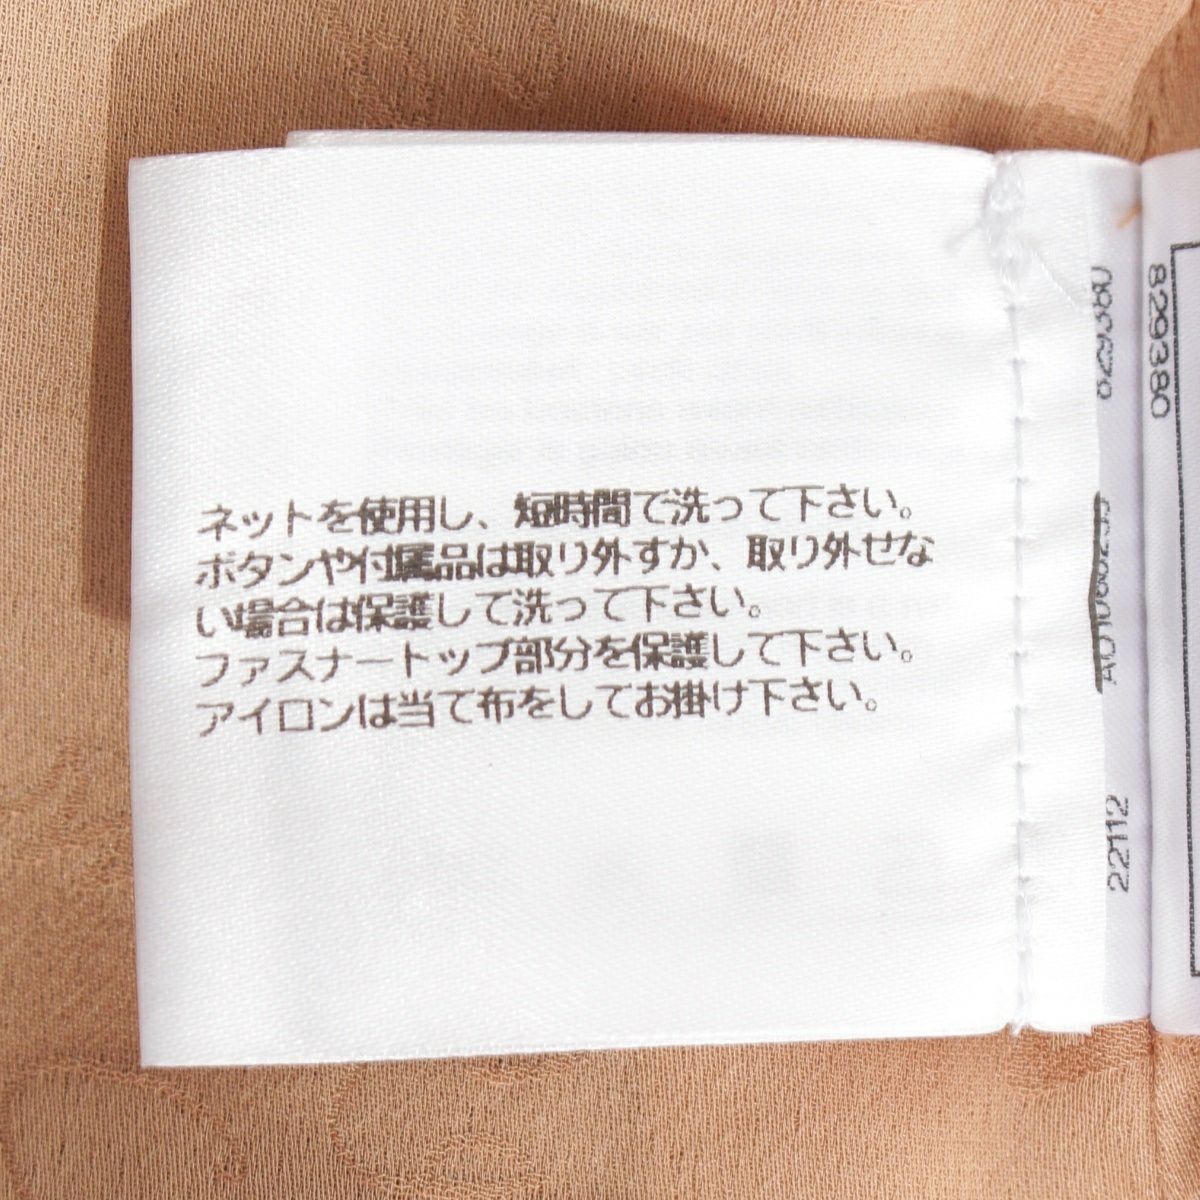 ネットを使用し、短時間で洗って下さい。
ボタンや付属品は取り外すか、取り外せな
い場合は保護して洗って下さい。
ファスナートップ部分を保護して下さい。
アイロンは当て布をしてお掛け下さい。
829380
22112
829380